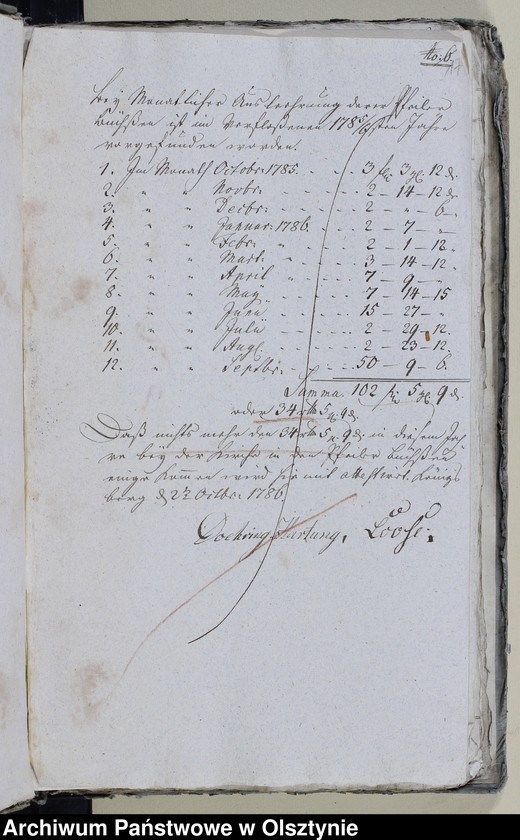 No: 6.
Bey Monatlicher Ausleehrung derer Pfeiler
Büchßen ist im Verfloßenen 1785/6sten Jahre
vorgefunden worden.
1. Im Monath Octobr: 1785. - - - 3 fl: 3 gl. 12 d.
2. " " Novbr: - - - 2 - 14 - 12 d.
3. " " Decbr: - - - 2 - " - 6 -
4. " " Januar: 1786. - - - 2 - 7 - "
5. " " Febr: " - - - 2 - 1 - 12.
6. " " Mart: - - - 3 - 14 - 12.
7. " " April " - - - 7 - 9 -
8. " " May - - - 7 - 14 - 15
9. " " Juni - - - 15 - 27 - "
10. " " Julii - - - 2 - 29 - 12.
11. " " Aug: - - - 2 - 23 - 12.
12. " " Septbr: - - - 50 - 9 - 6.
Summa. 102 fl: 5 gl. 9 d.
oder 34 rth 5 g. 9 d.
Daß nichts mehr den 34 rth 5 g. 9 d. in diesem Jah
re bey der Kirche in den Pfeiler Büchßen
einge kommen wird hie mit attestirt. Königs
berg d 27 Octbr: 1786.
Doehring Hartung. Loose.
Archiwum Państwowe w Olsztynie